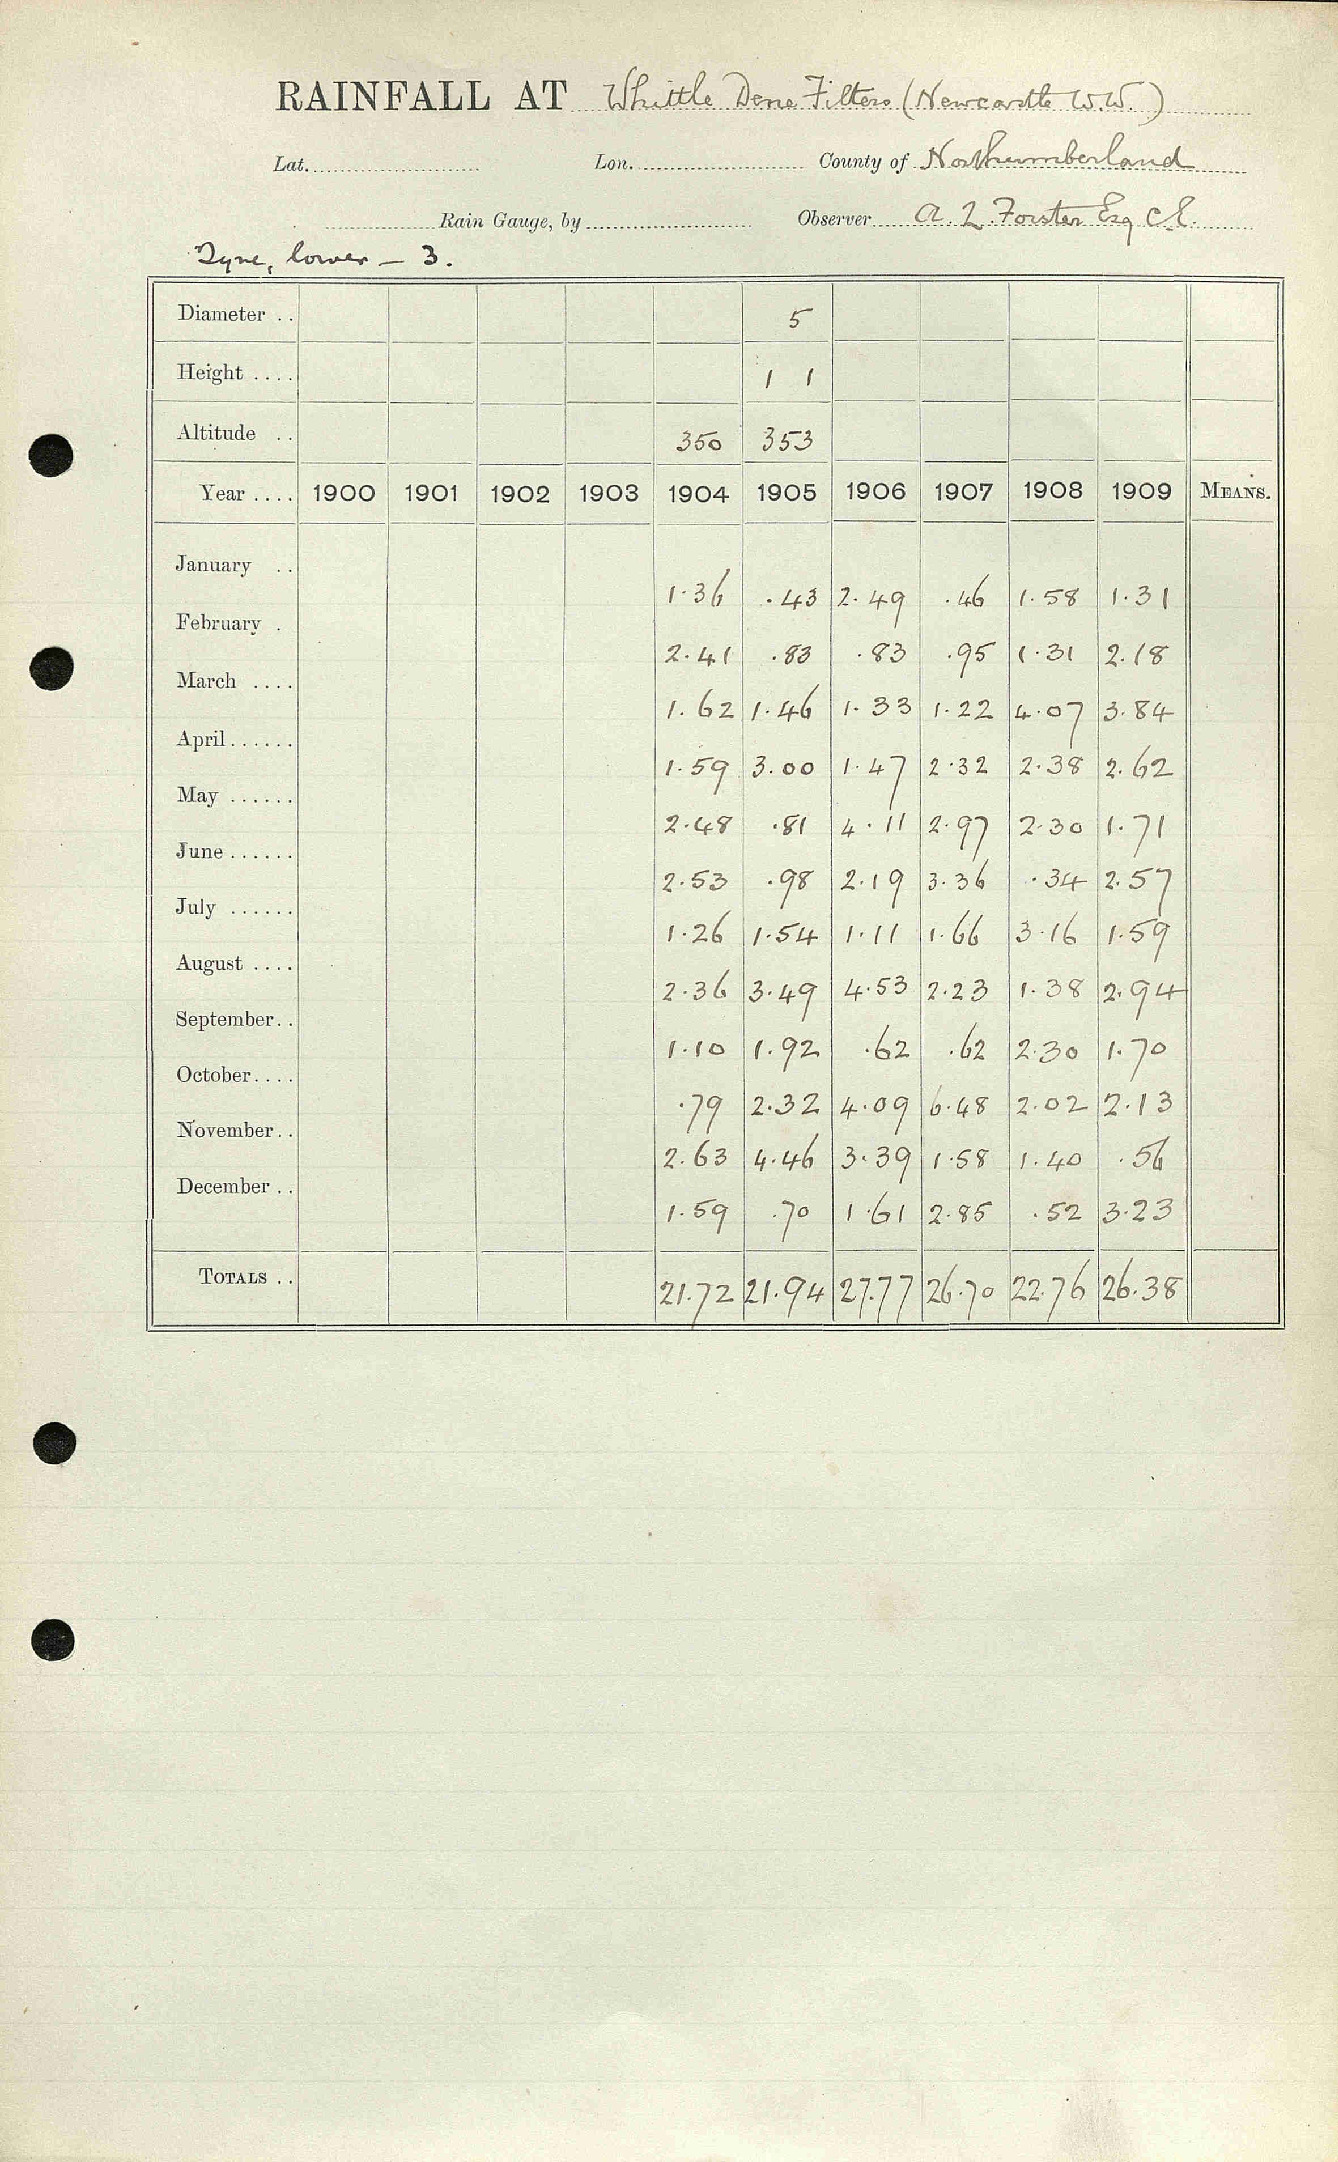 RAINFALL AT Whittle Dene Filters (Newcastle W.W.)
Lat. Lon. County of Northumberland
Rain Gauge, by Observer A. L. Forster Esq C.E.
Tyne, lower — 3.
Diameter .. 5
Height .... 1 1
Altitude .. 350 353
Year .... 1900 1901 1902 1903 1904 1905 1906 1907 1908 1909 MEANS.
January .. 1.36 .43 2.49 .46 1.58 1.31
February . 2.41 .83 .83 .95 1.31 2.18
March .... 1.62 1.46 1.33 1.22 4.07 3.84
April...... 1.59 3.00 1.47 2.32 2.38 2.62
May ...... 2.48 .81 4.11 2.97 2.30 1.71
June...... 2.53 .98 2.19 3.36 .34 2.57
July ...... 1.26 1.54 1.11 1.66 3.16 1.59
August .... 2.36 3.49 4.53 2.23 1.38 2.94
September.. 1.10 1.92 .62 .62 2.30 1.70
October.... .79 2.32 4.09 6.48 2.02 2.13
November.. 2.63 4.46 3.39 1.58 1.40 .56
December .. 1.59 .70 1.61 2.85 .52 3.23
TOTALS .. 21.72 21.94 27.77 26.70 22.76 26.38